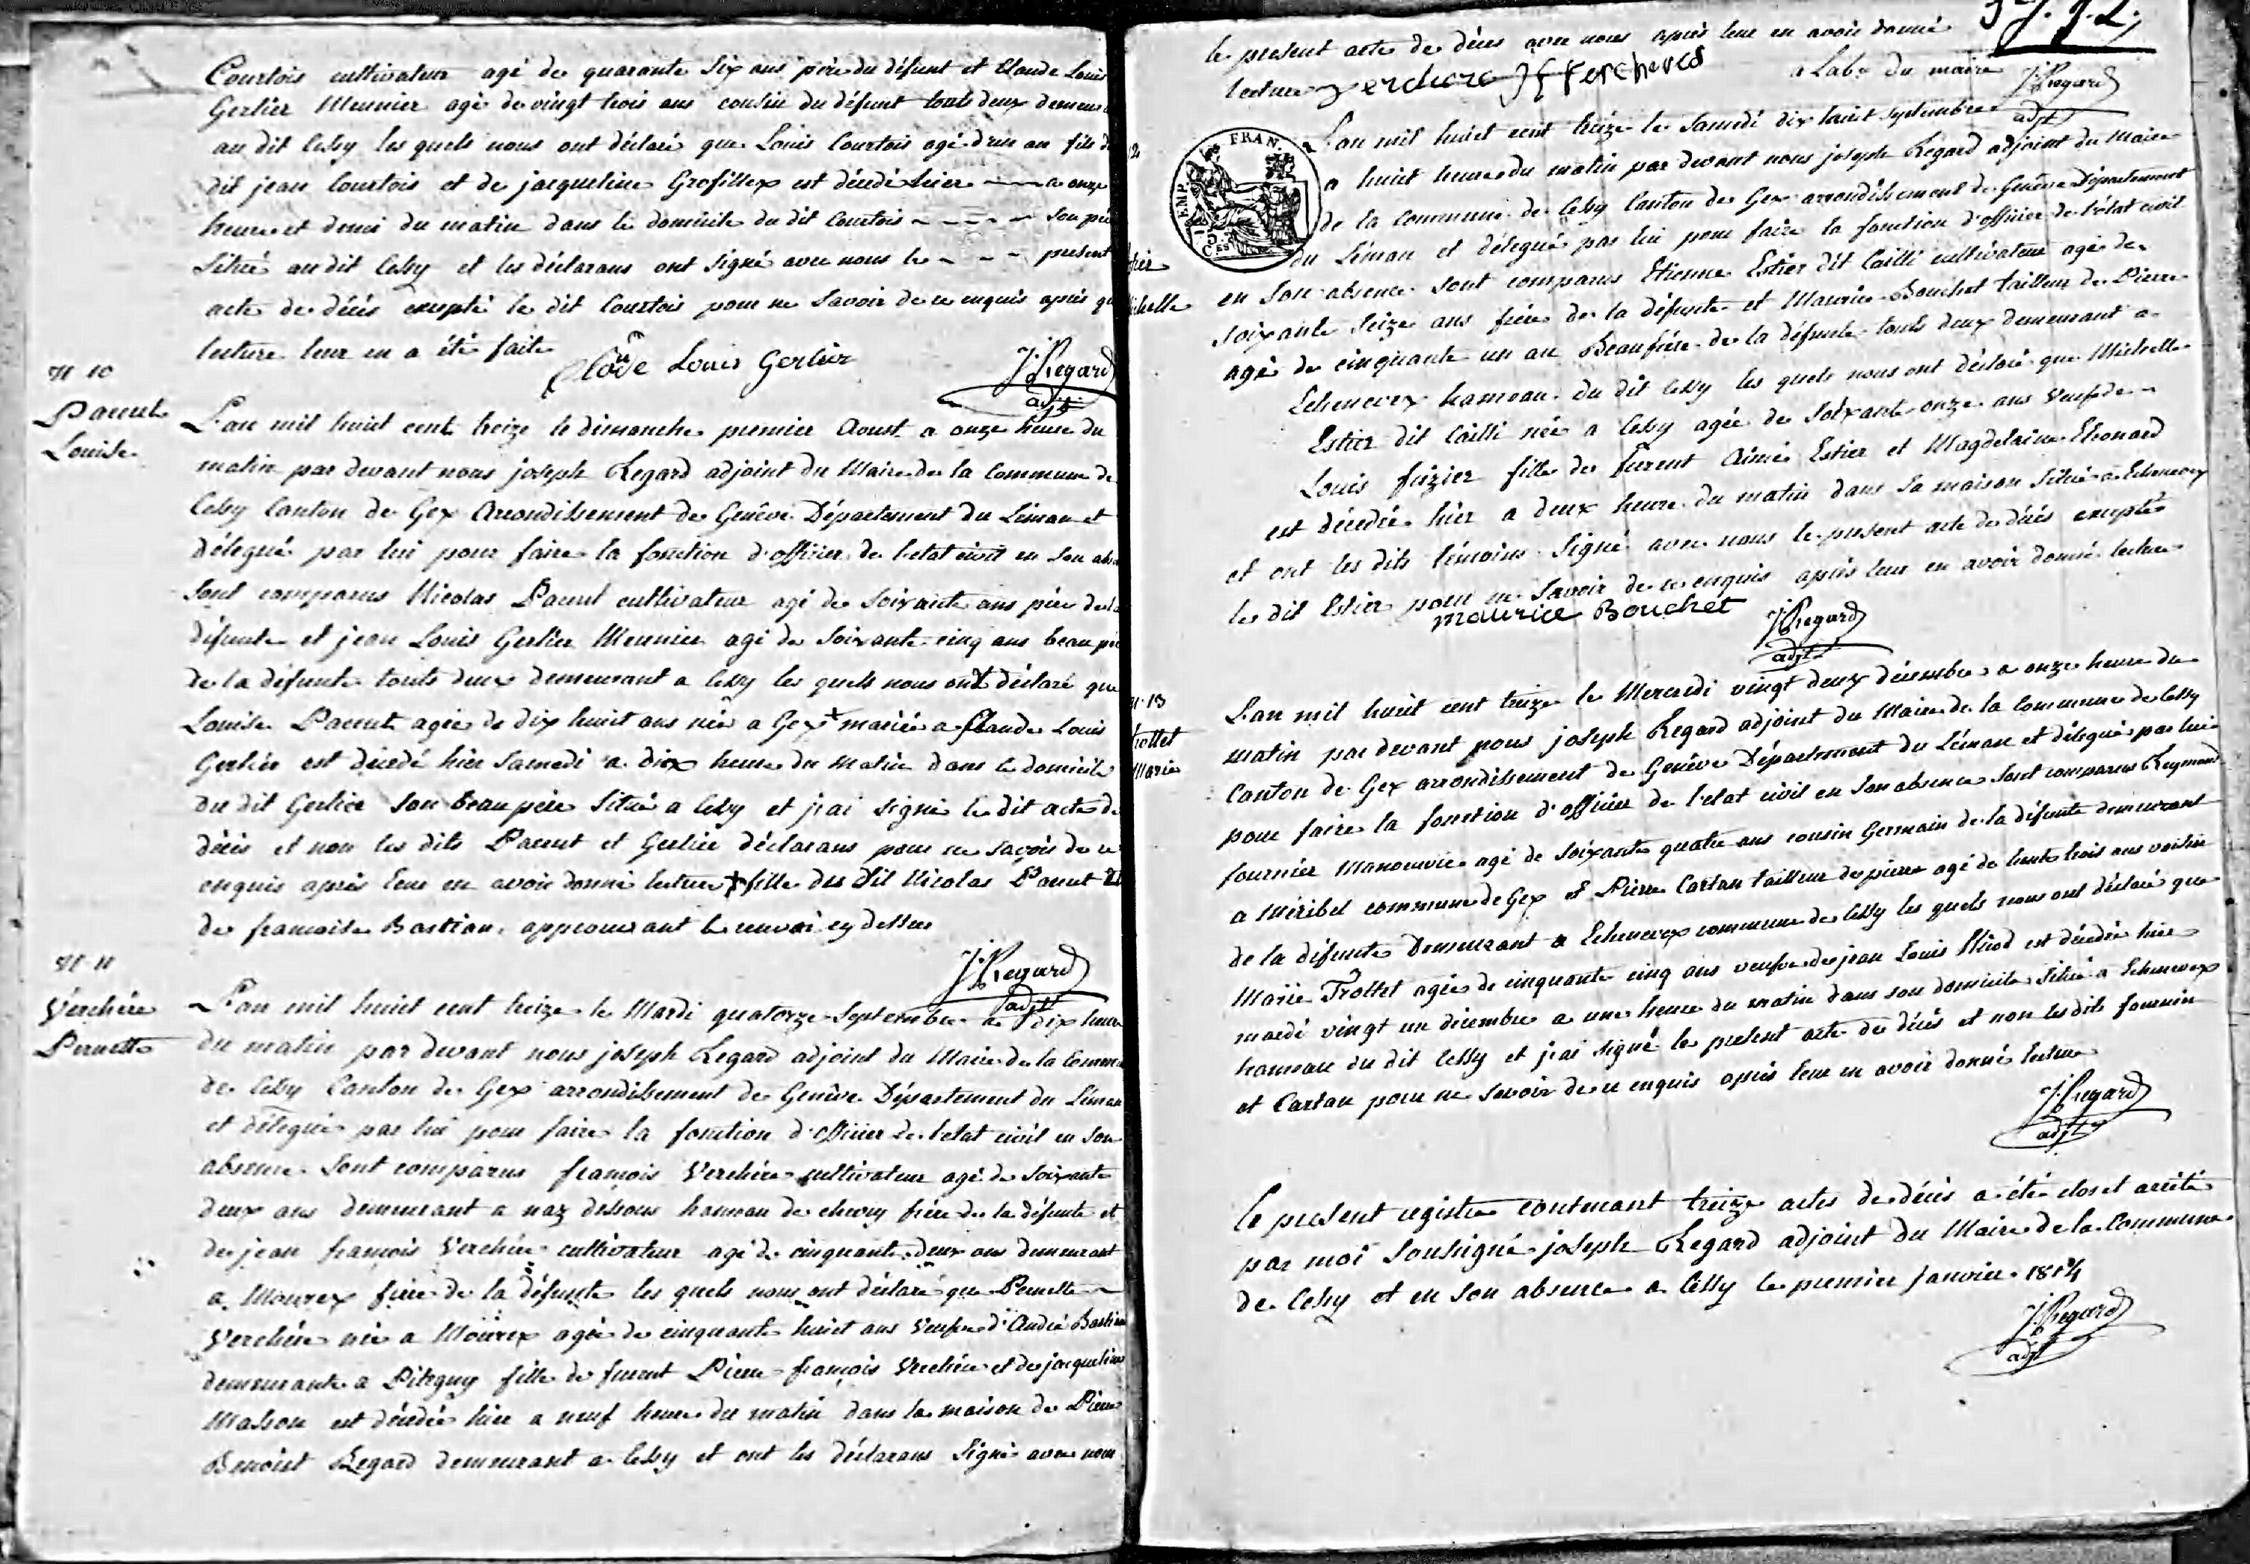 Courtois cultivateur agé de quarante six ans père du défunt et Claude Louis
Gerlier Meunier agé de vingt trois ans cousin du défunt touts deux demeur
au dit Cessy les quels nous ont déclaré que Louis Courtois agé d'un an fils d
dit jean Courtois et de jacqueline Grofillex est décédé hier a onze
heure et demi du matin dans le domicile du dit Courtois - - - - son pè
situé au dit Cessy et les déclarans ont signé avec nous le - - - présent
acte de décès excepté le dit Courtois pour ne savoir de ce enquis après qu
lecture leur en a été faite
Clode Louis Gerlier
J: Regard
adjt
N 10
Panut
Louise
L'an mil huit cent treize le dimanche premier Aoust a onze heure du
matin par devant nous joseph Regard adjoint du Maire de la Commune de
Cessy Canton de Gex Arrondissement de Genève Département du Léman et
délegué par lui pour faire la fonction d'officier de l'etat civil en son abs
sont comparus Nicolas Panut cultivateur agé de soixante ans père de la
défunte et jean Louis Gerlier Meunier agé de soixante cinq ans beau pè
de la défunte touts deux demeurant a Cessy les quels nous ont déclaré que
Louise Panut agée de dix huit ans née a Gex + mariée a Claude Louis
Gerlier est décédé hier samedi a dix heure du matin dans le domicile
du dit Gerlier son beau père situé a Cessy et j'ai signé le dit acte de
décès et non les dits Panut et Gerlier déclarans pour ne savoir de ce
enquis après leur en avoir donné lecture + fille des dit Nicolas Panut et
de francoise Bastian, approuvant le renvoi cy dessus
J: Regard
adjt
N 11
Verchère
Pernette
L'an mil huit cent treize le Mardi quatorze Septembre a dix heure
du matin par devant nous joseph Regard adjoint du Maire de la Commu
de Cessy Canton de Gex arrondissement de Genève Département du Léman
et délegué par lui pour faire la fonction d'officier de l'etat civil en son
absence sont comparus francois Verchère cultivateur agé de soixante
deux ans demeurant a naz dessous hameau de chevry frère de la défunte et
de jean francois Verchère cultivateur agé de cinquante deux ans demeurant
a Mourex frère de la défunte les quels nous ont déclaré que Pernette
Verchère née a Mourex agée de cinquante huit ans Veufve d'André Bastian
demeurante a Pitegny fille de furent Pierre francois Verchère et de jacqueline
Masson est décédée hier a neuf heure du matin dans la maison de Pierre
Benoist Regard demeurant a Cessy et ont les déclarans signé avec nous
le present acte de décès avec nous après leur en avoir donné
lecture Verchere JF Vercheres
a Labs du maire J: Regard
adjt
12
L'an mil huit cent treize le Samedi dix huit septembre
EMP. FRAN.
a huit heure du matin par devant nous joseph Regard adjoint du Maire
de la Commune de Cessy Canton de Gex arrondissement de Genève Département
du Léman et délegué par lui pour faire la fonction d'officier de l'état civil
en son absence sont comparus Etienne Estier dit Cailli cultivateur agé de
soixante seize ans frère de la défunte et Maurice Bouchet tailleur de Pierre
agé de cinquante un an Beaufrère de la défunte touts deux demeurant a
Echenevex hameau du dit Cessy les quels nous ont déclaré que Michelle
Estier dit Cailli née a Cessy agée de soixante onze ans Veufve de
Louis fuzier fille de furent Aimé Estier et Magdelaine Elionard
est décédée hier a deux heure du matin dans sa maison située a Echenevex
et ont les dits témoins signé avec nous le present acte de décès excepté
le dit Estier pour ne savoir de ce enquis après leur en avoir donné lecture
maurice Bouchet
J: Regard
adjt
N 13
Trottet
Marie
L'an mil huit cent treize le Mercredi vingt deux décembre a onze heure du
matin par devant nous joseph Regard adjoint du Maire de la Commune de Cessy
Canton de Gex arrondissement de Genève Département du Léman et délegué par lui
pour faire la fonction d'officier de l'etat civil en son absence sont comparus Reymond
fournier Manouvrie agé de soixante quatre ans cousin Germain de la défunte demeurant
a Méribel commune de Gex et Pierre Cartan tailleur de pierre agé de trente trois ans voisin
de la défunte Demeurant a Echenevex commune de Cessy les quels nous ont déclaré que
Marie Trottet agée de cinquante cinq ans veufve de jean Louis Nicod est décédée hier
mardi vingt un décembre a une heure du matin dans son domicile situé a Echenevex
hameau du dit Cessy et j'ai signé le present acte de décès et non les dits fournier
et Cartan pour ne savoir de ce enquis après leur en avoir donné lecture
J: Regard
adjt
Le present registre contenant treize actes de décès a été clos et arrêté
par moi soussigné joseph Regard adjoint du Maire de la Commune
de Cessy et en son absence a Cessy le premier Janvier 1814
J: Regard
adjt